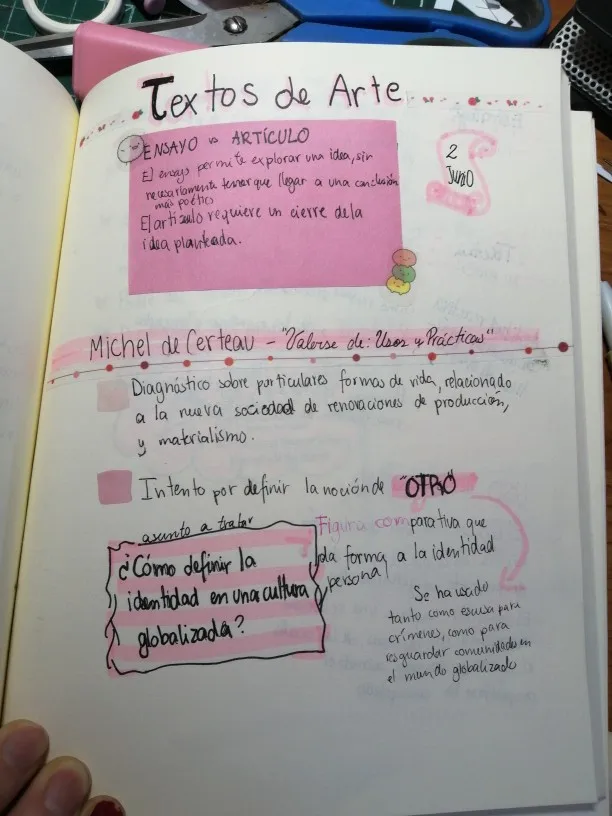 Textos de Arte
ENSAYO vs ARTÍCULO
El ensayo permite explorar una idea, sin
necesariamente tener que llegar a una conclusión
más poético
El artículo requiere un cierre de la
idea planteada.
2
Junio
Michel de Certeau - "Valerse de: Usos y Prácticas"
Diagnóstico sobre particulares formas de vida, relacionado
a la nueva sociedad de renovaciones de producción,
y materialismo.
Intento por definir la noción de "OTRO"
asunto a tratar
¿Cómo definir la
identidad en una cultura
globalizada?
Figura comparativa que
da forma a la identidad
personal
Se ha usado
tanto como escusa para
crímenes, como para
resguardar comunidades en
el mundo globalizado